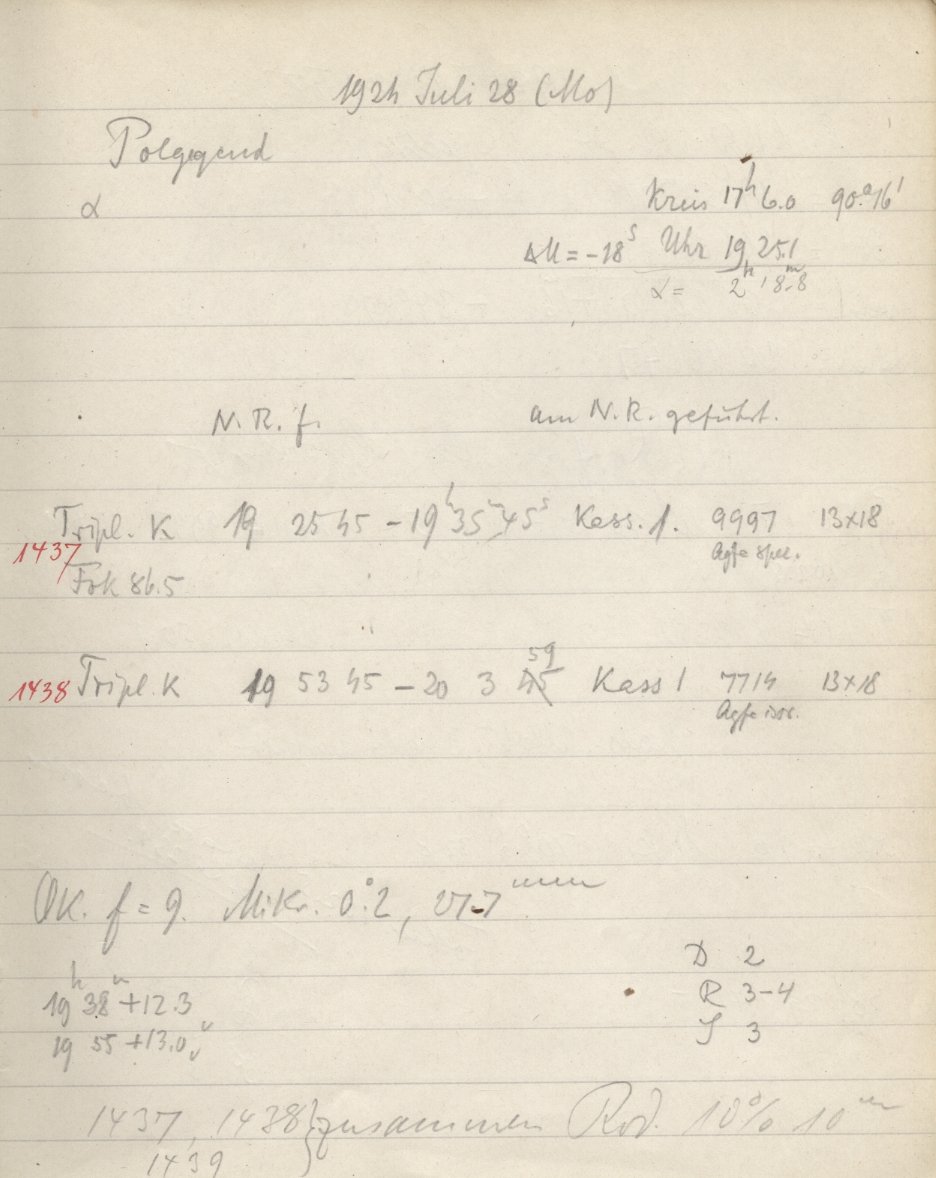 1924 Juli 28 (Mo)
Polgegend
α Kreis 17h 6.0 90.°16'
ΔU = -18s Uhr 19 25.1
α = 2h 18.8m
N. R. f. am N. R. geführt.
Tripl. K 19 25 45 - 19h 35m 45s Kass. 1. 9997 13x18
1437 Agfa spec.
Fok 86.5
59
1438 Tripl. K 19 53 45 - 20 3 45 Kass 1 7714 13x18
Agfa isor.
OK. f = 9. Mikr. 0°.2, 27.7 mm
D 2
19h 38m +12.3 R 3-4
19 55 +13.0 S 3
1437, 1438 } zusammen Rod. 10% 10m
1439